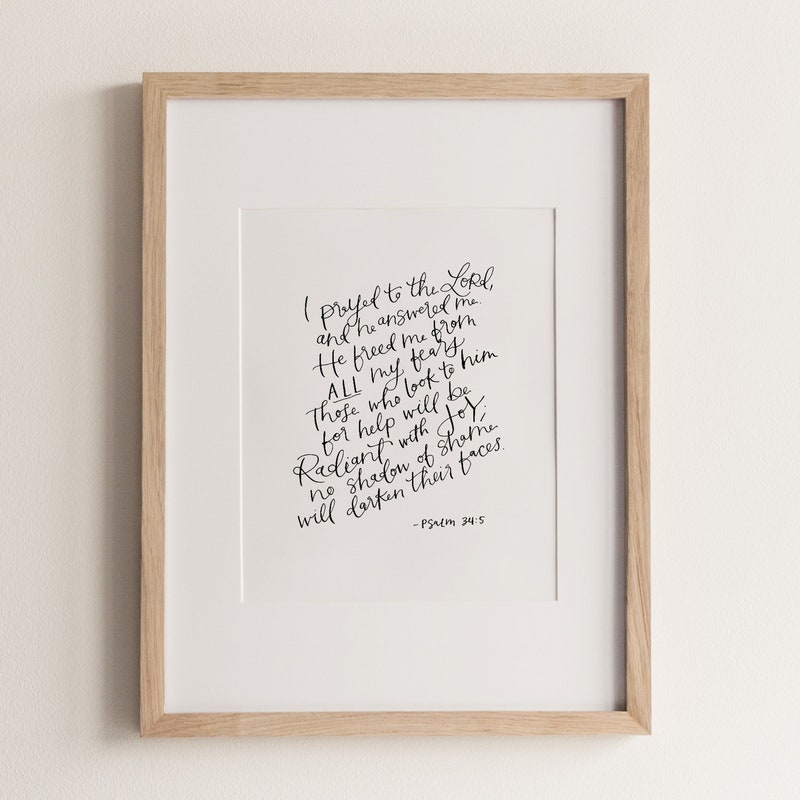 I prayed to the LORD,
and he answered me.
He freed me from
ALL my fears
Those who look to him
for help will be
Radiant with JOY;
no shadow of shame
will darken their faces.
-PSalm 34:5